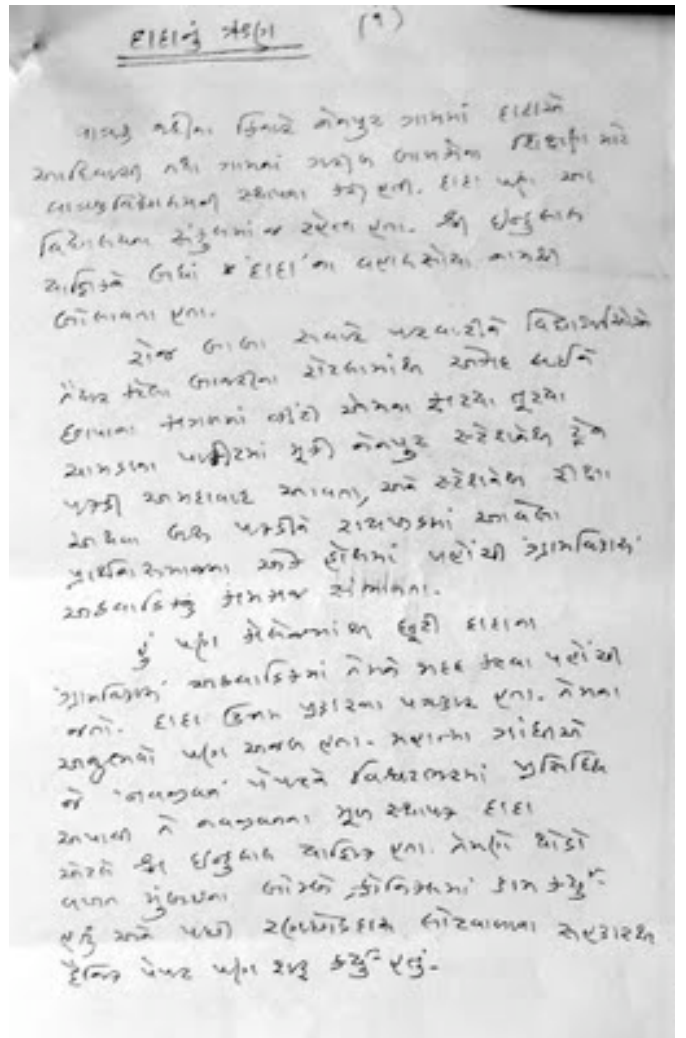 દાદાનું ઋણ (૧)
વાત્રક નદીના કિનારે નેનપુર ગામમાં દાદાએ
આદિવાસી તથા ગામનાં ગરીબ બાળકોના શિક્ષણ માટે
વાત્રકવિદ્યાલયની સ્થાપના કરી હતી. દાદા પણ આ
વિદ્યાલયના સંકુલમાં જ રહેતા હતા. શ્રી ઇન્દુલાલ
યાજ્ઞિકને બધાં 'દાદા'ના વહાલસોયા નામથી
બોલાવતા હતા.
રોજ દાદા સવારે પરવારીને વિદ્યાર્થીઓએ
તૈયાર કરેલા બાજરીના રોટલામાંથી એકાદ લઈને
છાપાના કાગળમાં વીંટી એમના ફાટ્યા તૂટ્યા
ચામડાના પાકીટમાં મૂકી નેનપુર સ્ટેશનેથી ટ્રેન
પકડી અમદાવાદ આવતા, અને સ્ટેશનેથી રીક્ષા
અથવા બસ પકડીને રાયખડમાં આવેલા
પ્રાર્થનાસમાજના એક હોલમાં પહોંચી 'ગ્રામવિકાસ'
અઠવાડિકનું કામકાજ સંભાળતા.
હું પણ કોલેજમાંથી છૂટી દાદાના
'ગ્રામવિકાસ' અઠવાડિકમાં તેમને મદદ કરવા પહોંચી
જતો. દાદા ઉત્તમ પ્રકારના પત્રકાર હતા. તેમના
અનુભવો પણ અજબ હતા. મહાત્મા ગાંધીએ
જે 'નવજીવન' પેપરને વિશ્વભરમાં પ્રસિદ્ધિ
અપાવી તે નવજીવનના મૂળ સ્થાપક દાદા
એટલે શ્રી ઇન્દુલાલ યાજ્ઞિક હતા. તેમણે થોડો
વખત મુંબઇના બોમ્બે ક્રોનિકલમાં કામ કર્યું
હતું અને પછી રણછોડદાસ લોટવાળાના સહકારથી
દૈનિક પેપર પણ શરૂ કર્યું હતું.